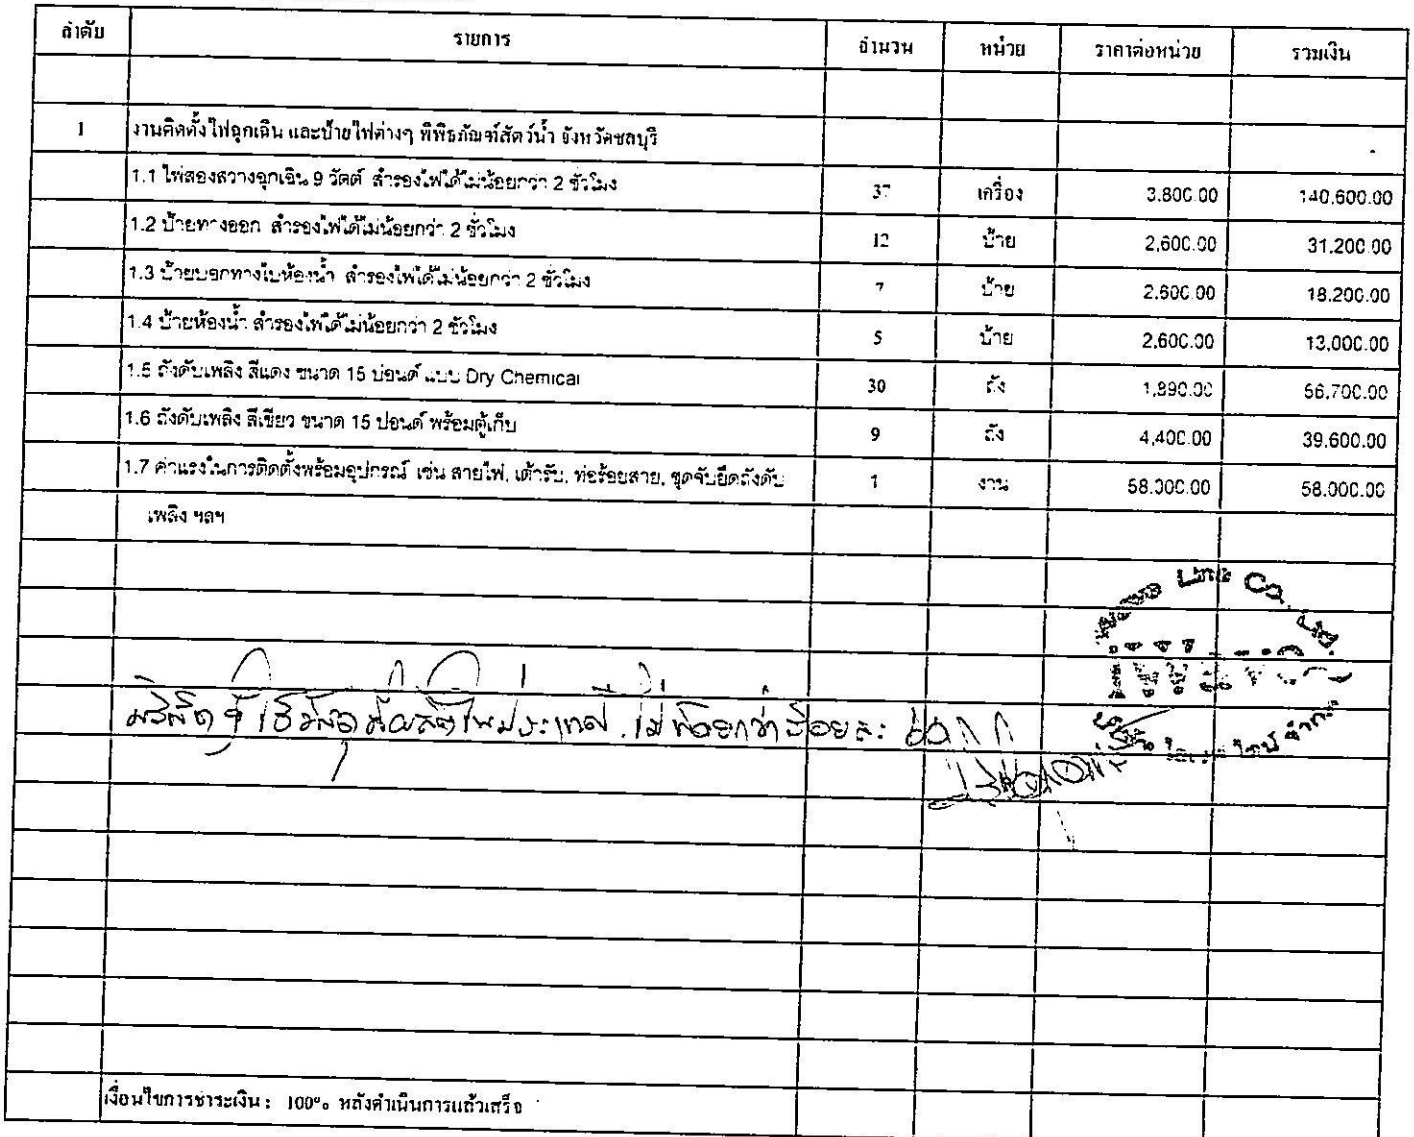 ลำดับ รายการ จำนวน หน่วย ราคาต่อหน่วย รวมเงิน
1 งานติดตั้งไฟฉุกเฉิน และป้ายไฟต่างๆ พิพิธภัณฑ์สัตว์น้ำ จังหวัดชลบุรี -
1.1 ไฟส่องสว่างฉุกเฉิน 9 วัตต์ สำรองไฟได้ไม่น้อยกว่า 2 ชั่วโมง 37 เครื่อง 3,800.00 140,600.00
1.2 ป้ายทางออก สำรองไฟได้ไม่น้อยกว่า 2 ชั่วโมง 12 ป้าย 2,600.00 31,200.00
1.3 ป้ายบอกทางไปห้องน้ำ สำรองไฟได้ไม่น้อยกว่า 2 ชั่วโมง 7 ป้าย 2,600.00 18,200.00
1.4 ป้ายห้องน้ำ สำรองไฟได้ไม่น้อยกว่า 2 ชั่วโมง 5 ป้าย 2,600.00 13,000.00
1.5 ถังดับเพลิง สีแดง ขนาด 15 ปอนด์ แบบ Dry Chemical 30 ถัง 1,890.00 56,700.00
1.6 ถังดับเพลิง สีเขียว ขนาด 15 ปอนด์ พร้อมตู้เก็บ 9 ถัง 4,400.00 39,600.00
1.7 ค่าแรงในการติดตั้งพร้อมอุปกรณ์ เช่น สายไฟ, เต้ารับ, ท่อร้อยสาย, ชุดจับยึดถังดับ 1 งาน 58,000.00 58,000.00
เพลิง ฯลฯ
Line Co., Ltd.
ใช้พัสดุ ผลิตในประเทศ ไม่น้อยกว่าร้อยละ ๖๐
จำกัด
เงื่อนไขการชำระเงิน : 100% หลังดำเนินการแล้วเสร็จ